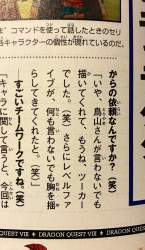 "コマンドを使って話したときのセリ
キャラクターの個性が現れているのだ。
からの依頼なんですか？（笑）
「いや、鳥山さんが言わないでも
描いてくれて、もうね、ツーカー
でした。（笑）さらにレベルファ
イブが、何も言わないでも胸を揺
らしてきてくれたと。（笑）」
すごいチームワークですね。（笑）
「キャラに関して言うと、今回は
QUEST VIII ✦ DRAGON QUEST VIII ✦